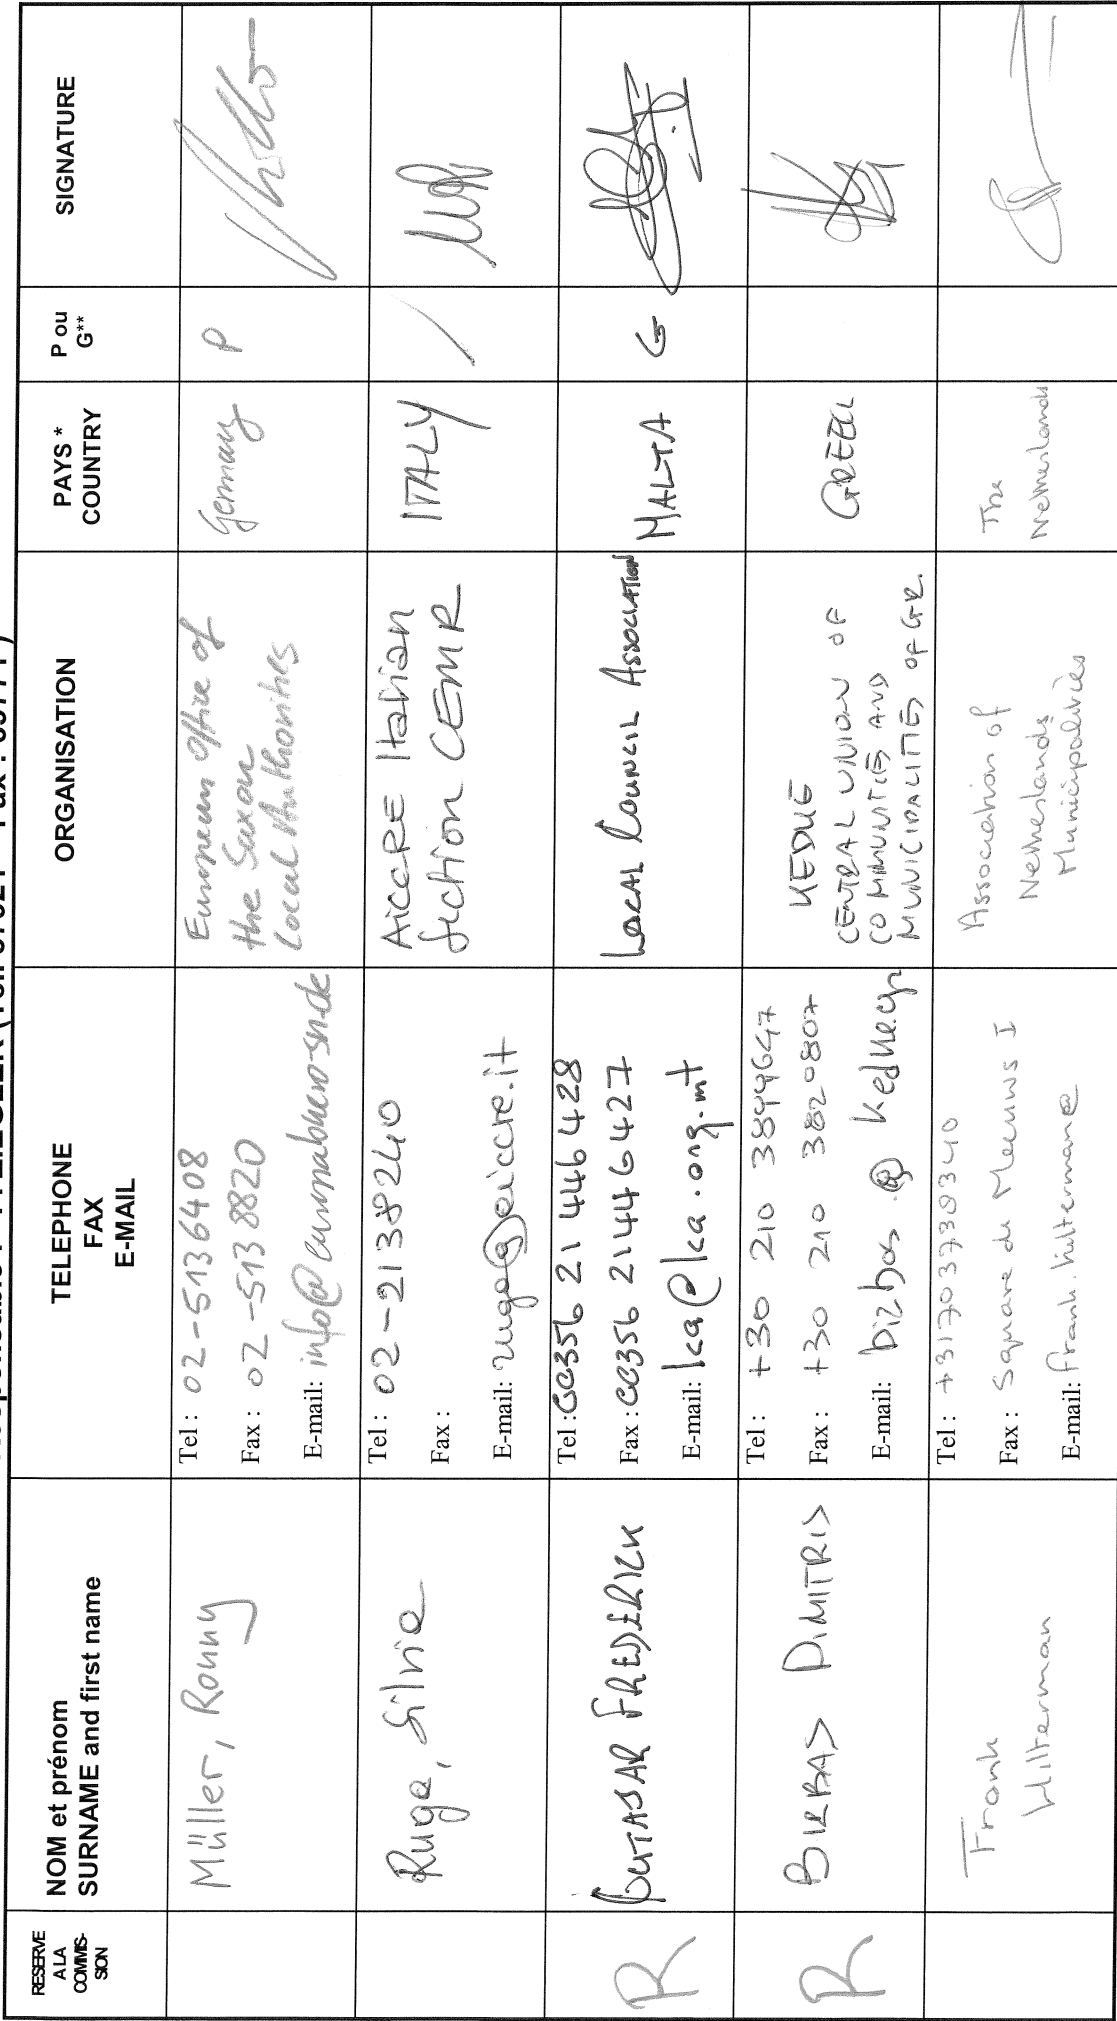 RESERVE
A LA
COMMIS-
SION
NOM et prénom
SURNAME and first name
TELEPHONE
FAX
E-MAIL
ORGANISATION
PAYS *
COUNTRY
P ou
G**
SIGNATURE
Müller, Ronny
Tel : 02-5136408
Fax : 02-5138820
E-mail: info@europabuero-sn.de
European Office of
the Saxon
Local Authorities
Germany
P
Ruga, Silvia
Tel : 02-2138240
Fax :
E-mail: ruga@aiccre.it
AICCRE Italian
section CEMR
ITALY
/
R
CUTAJAR FREDERICK
Tel : 00356 21 446428
Fax : 00356 21446427
E-mail: lca@lca.org.mt
LOCAL COUNCIL ASSOCIATION
MALTA
G
R
BIRBAS DIMITRIS
Tel : +30 210 3899647
Fax : +30 210 3820807
E-mail: birbas@kedke.gr
KEDKE
CENTRAL UNION OF
COMMUNITIES AND
MUNICIPALITIES OF GR.
GREECE
Frank
Hilterman
Tel : +31703738340
Fax : Square de Meeuws 1
E-mail: frank.hilterman@
Association of
Netherlands
Municipalities
The
Netherlands